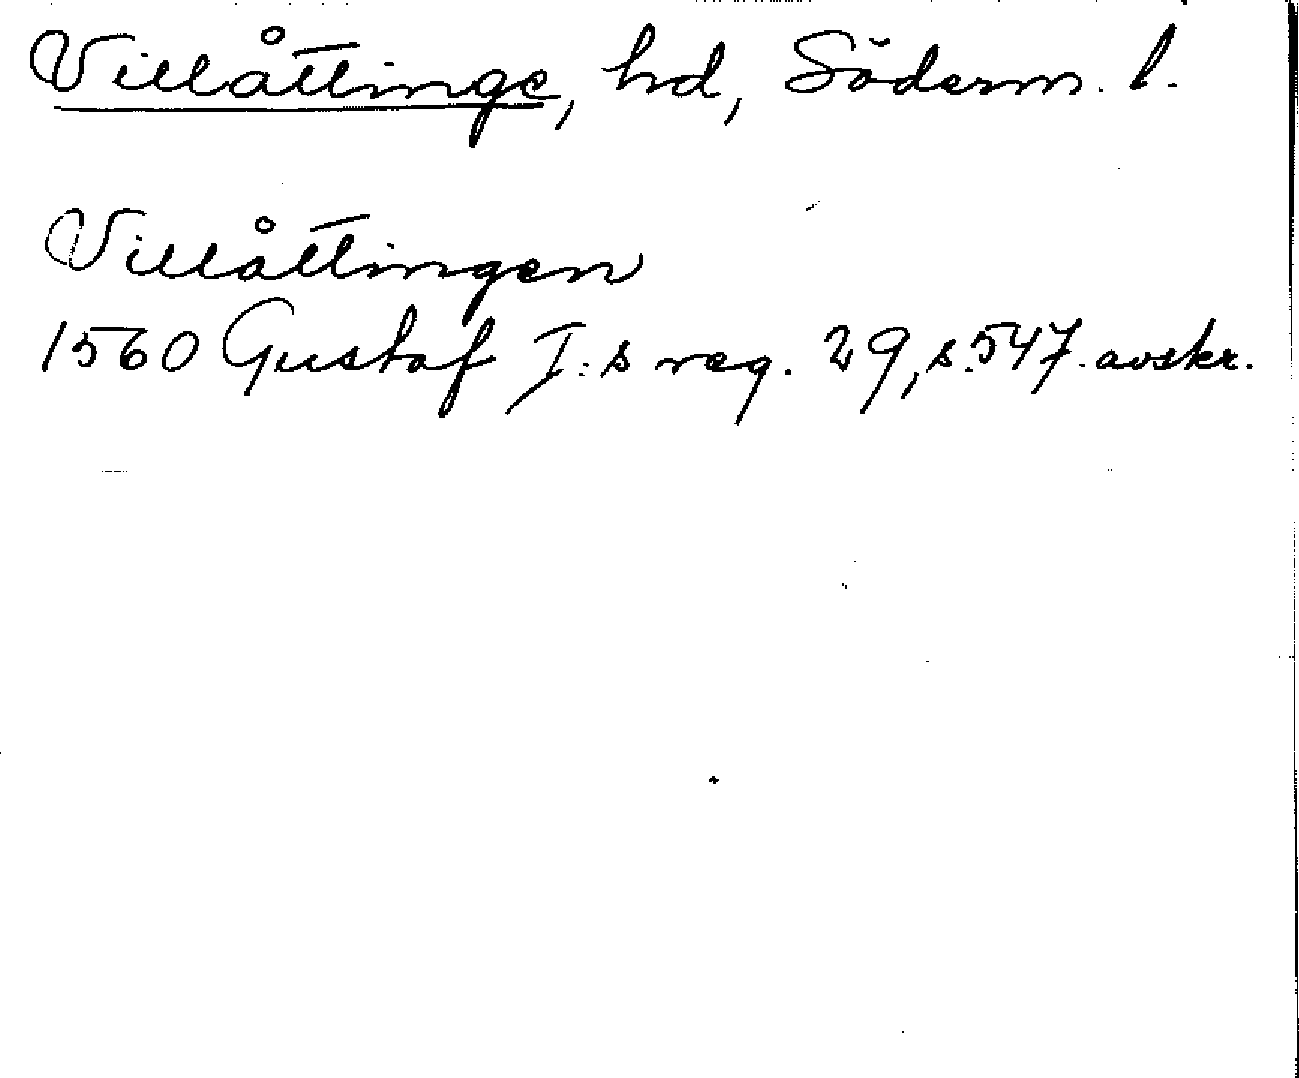 Villåttinge, hd, Söderm. l.
Villåttingen
1560 Gustaf I:s reg. 29, s. 547. avskr.